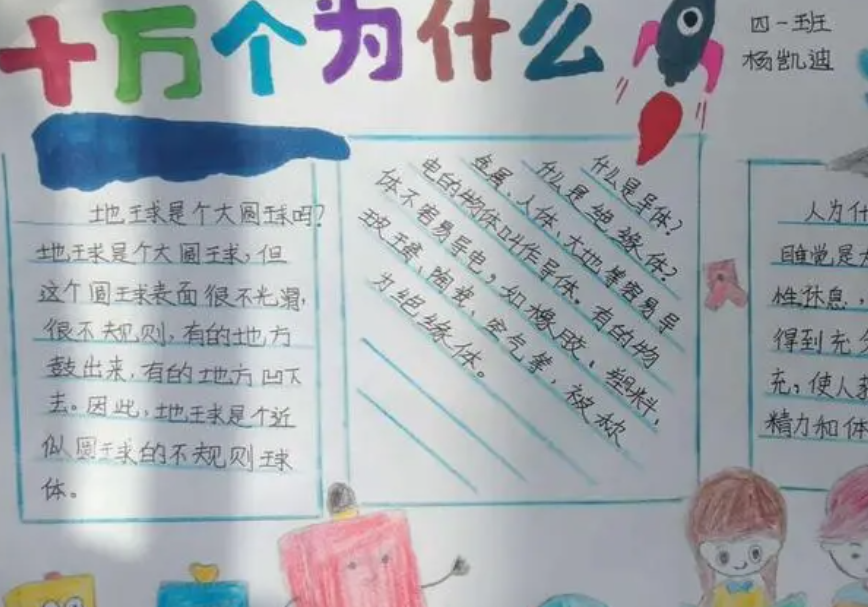 十万个为什么
四一班
杨凯迪
地球是个大圆球吗?
地球是个大圆球,但
这个圆球表面很不光滑,
很不规则,有的地方
鼓出来,有的地方凹下
去。因此,地球是个近
似圆球的不规则球
体。
什么是导体?
什么是绝缘体?
金属、人体、大地等容易导
电的物体叫作导体。有的物
体不容易导电,如橡胶、塑料,
玻璃、陶瓷、空气等,被称
为绝缘体。
人为什
睡觉是
性休息,
得到充分
充,使人
精力和体